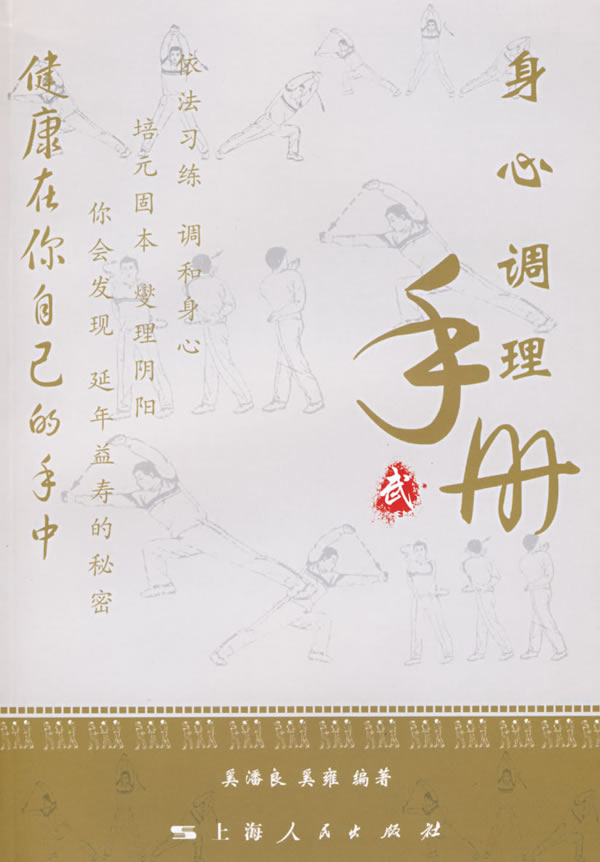 身心调理
手册
武
依法习练 调和身心
培元固本 燮理阴阳
你会发现 延年益寿的秘密
健康在你自己的手中
奚潘良 奚雍 编著
上海人民出版社